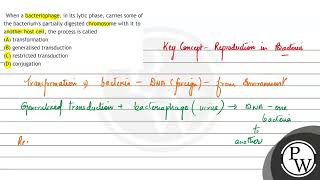 When a bacteriophage, in its lytic phase, carries some of
the bacterium's partially digested chromosome with it to
another host cell, the process is called
(A) transformation
(B) generalised transduction
(C) restricted transduction
(D) conjugation
Key Concept - Reproduction in Bacteria
Transformation → bacteria - DNA (foreign) - from Environment
Generalized transduction + bacteriophage (virus) → DNA - one
bacteria
to
another
Re
PW